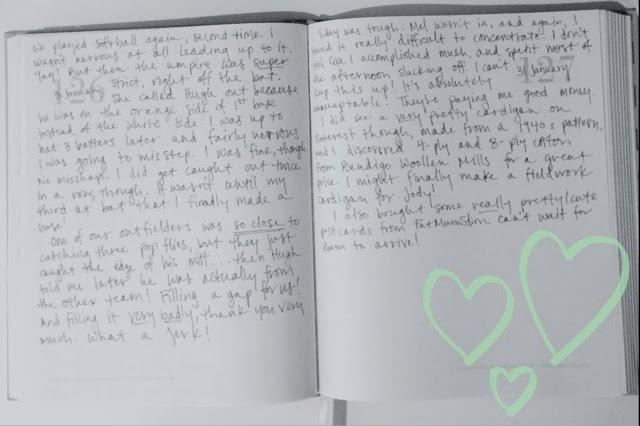 We played softball again, second time. I
wasn't nervous at all leading up to it.
Yay! But then the umpire was super
strict, right off the bat.
30 January
126
She called Hugh out because
he was on the orange side of 1st base
instead of the white side. I was up to
bat 3 batters later and fairly nervous
I was going to misstep. I was fine, though.
No misshaps. I did get caught out twice
in a row, though. It wasn't until my
third at bat that I finally made a
base!
One of our outfielders was so close to
catching three pop flies, but they just
caught the edge of his mitt.... then Hugh
told me later he was actually from
the other team! Filling a gap for us!
And filling it very badly, thank you very
much. What a jerk!
Today was tough. Mel wasn't in, and again, I
found it really difficult to concentrate. I don't
feel like I accomplished much, and spent most of
the afternoon slacking off. I can't
31 January
127
keep this up! It's absolutely
unacceptable! They're paying me good money.
I did see a very pretty cardigan on
Pinterest though, made from a 1940s pattern,
and I discovered 4-ply and 8-ply cotton
from Bendigo Woollen Mills for a great
price. I might finally make a fieldwork
cardigan for Jody!
I also bought some really pretty/cute
postcards from FatMumSlim. Can't wait for
them to arrive!